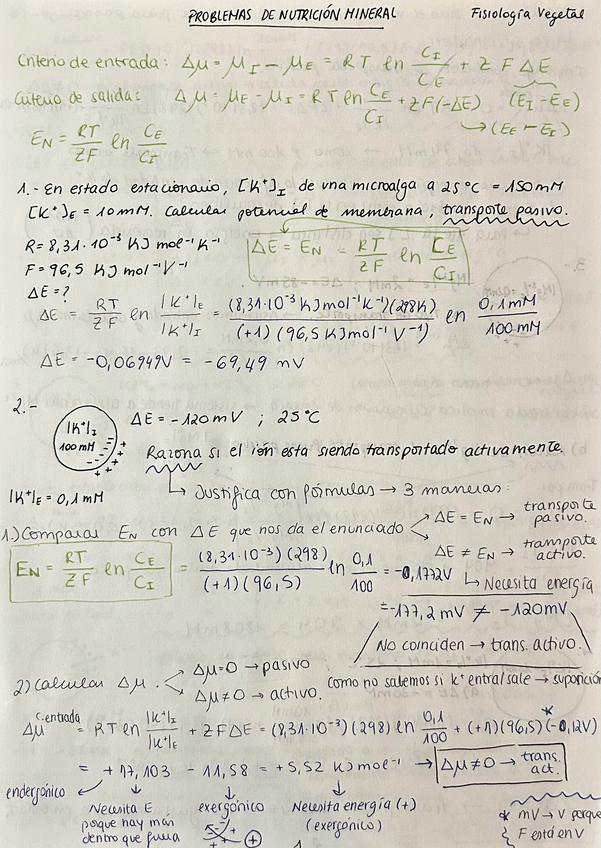 PROBLEMAS DE NUTRICIÓN MINERAL Fisiología Vegetal
Criterio de entrada: Δμ = μI − μE = RT ln CI/CE + Z F ΔE
Criterio de salida: Δμ = μE − μI = RT ln CE/CI + ZF(−ΔE) (EI − EE)
→ (EE − EI)
EN = RT/ZF ln CE/CI
1.- En estado estacionario, [K+]I de una microalga a 25°C = 150mM
[K+]E = 10mM. Calcular potencial de membrana, transporte pasivo.
R = 8,31·10⁻³ KJ mol⁻¹ K⁻¹
ΔE = EN = RT/ZF ln CE/CI
F = 96,5 KJ mol⁻¹ V⁻¹
ΔE = ?
ΔE = RT/ZF ln |K+|E/|K+|I = (8,31·10⁻³ KJ mol⁻¹ K⁻¹)(298K)/(+1)(96,5 KJ mol⁻¹ V⁻¹) ln 0,1mM/100mM
ΔE = −0,06949V = −69,49 nV
2.- |K+|I 100mM ΔE = −120mV ; 25°C
Razona si el ión esta siendo transportado activamente.
|K+|E = 0,1mM
↳ Justifica con fórmulas → 3 maneras:
1.) Comparar EN con ΔE que nos da el enunciado
ΔE = EN → transporte pasivo.
ΔE ≠ EN → transporte activo.
EN = RT/ZF ln CE/CI = (8,31·10⁻³)(298)/(+1)(96,5) ln 0,1/100 = −0,1772V
↳ Necesita energía
= −177,2 mV ≠ −120mV
No coinciden → trans. activo.
2) Calcular Δμ.
Δμ=0 → pasivo
Δμ≠0 → activo.
Como no sabemos si K+ entra/sale → suposición
Δμ c.entrada = RT ln |K+|I/|K+|E + ZFΔE = (8,31·10⁻³)(298) ln 0,1/100 + (+1)(96,5)(−0,12V)*
= +17,103 − 11,58 = +5,52 KJ mol⁻¹ → Δμ≠0 → trans. act.
endergónico
Necesita E porque hay más dentro que fuera
exergónico
+
Necesita energía (+) (exergónico)
* mV → V porque
F está en V